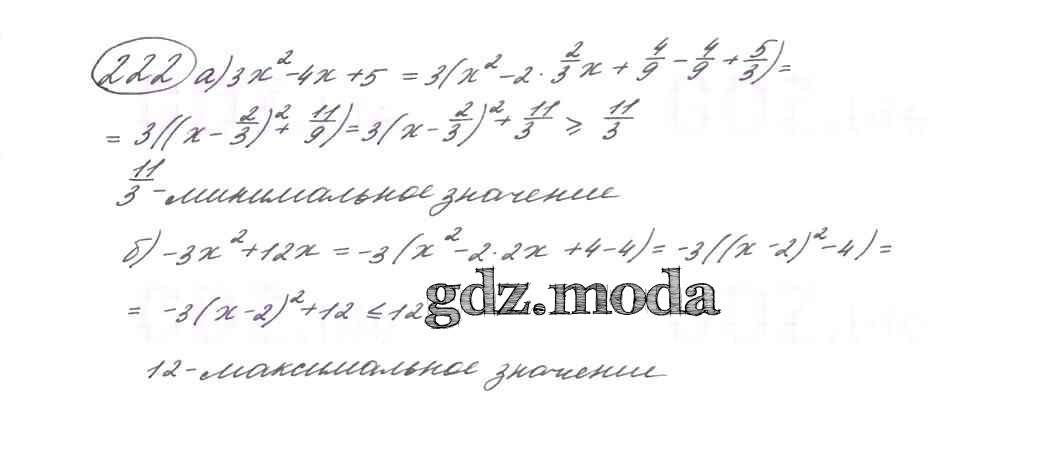 222 а) 3x² - 4x + 5 = 3(x² - 2 · 2/3 x + 4/9 - 4/9 + 5/3) =
= 3((x - 2/3)² + 11/9) = 3(x - 2/3)² + 11/3 ⩾ 11/3
11/3 - минимальное значение
б) -3x² + 12x = -3(x² - 2 · 2x + 4 - 4) = -3((x - 2)² - 4) =
= -3(x - 2)² + 12 ≤ 12
gdz.moda
12 - максимальное значение